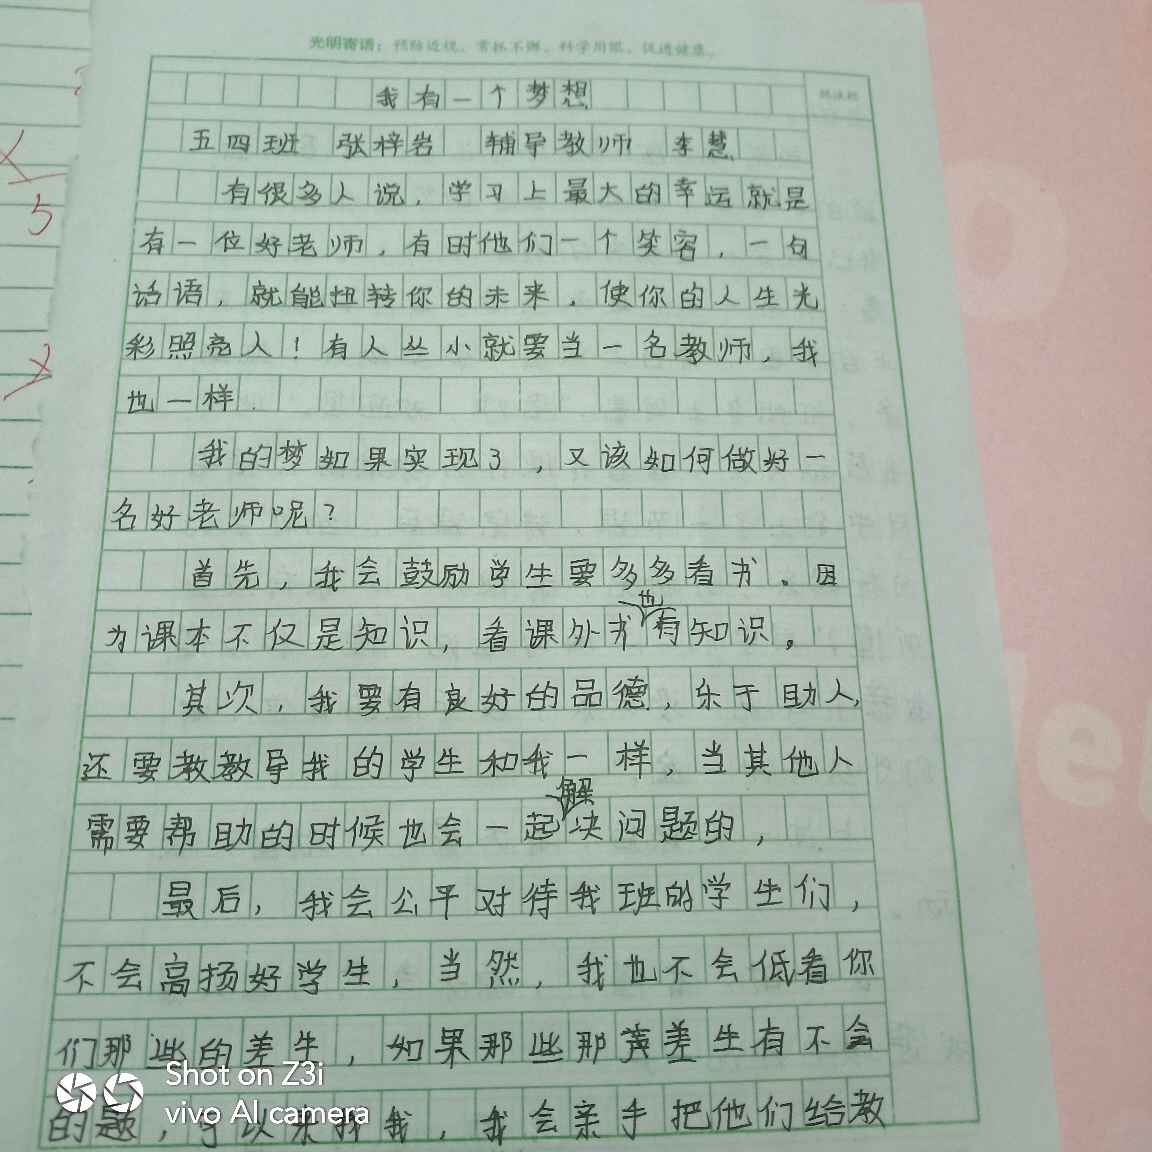 光明寄语：预防近视，常抓不懈，科学用眼，促进健康。
我有一个梦想
五四班 张梓岩 辅导教师 李慧
有很多人说，学习上最大的幸运就是
有一位好老师，有时他们一个笑容，一句
话语，就能扭转你的未来，使你的人生光
彩照亮人！有人丛小就要当一名教师，我
也一样.
我的梦如果实现了，又该如何做好一
名好老师呢？
首先，我会鼓励学生要多多看书。因
为课本不仅是知识，看课外书也有知识。
其次，我要有良好的品德，乐于助人，
还要教教导我的学生和我一样，当其他人
需要帮助的时候也会一起解决问题的，
最后，我会公平对待我班的学生们，
不会高扬好学生，当然，我也不会低看你
们那些的差生，如果那些那差生有不会
的题，可以来找我，我会亲手把他们给教
Shot on Z3i
vivo AI camera
X
5
X